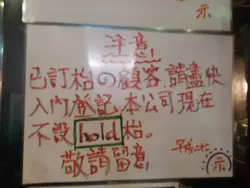 示
注意
已訂枱の顧客,請盡快
入內登記,本公司現在
不設 hold 枱。
敬請留意
示